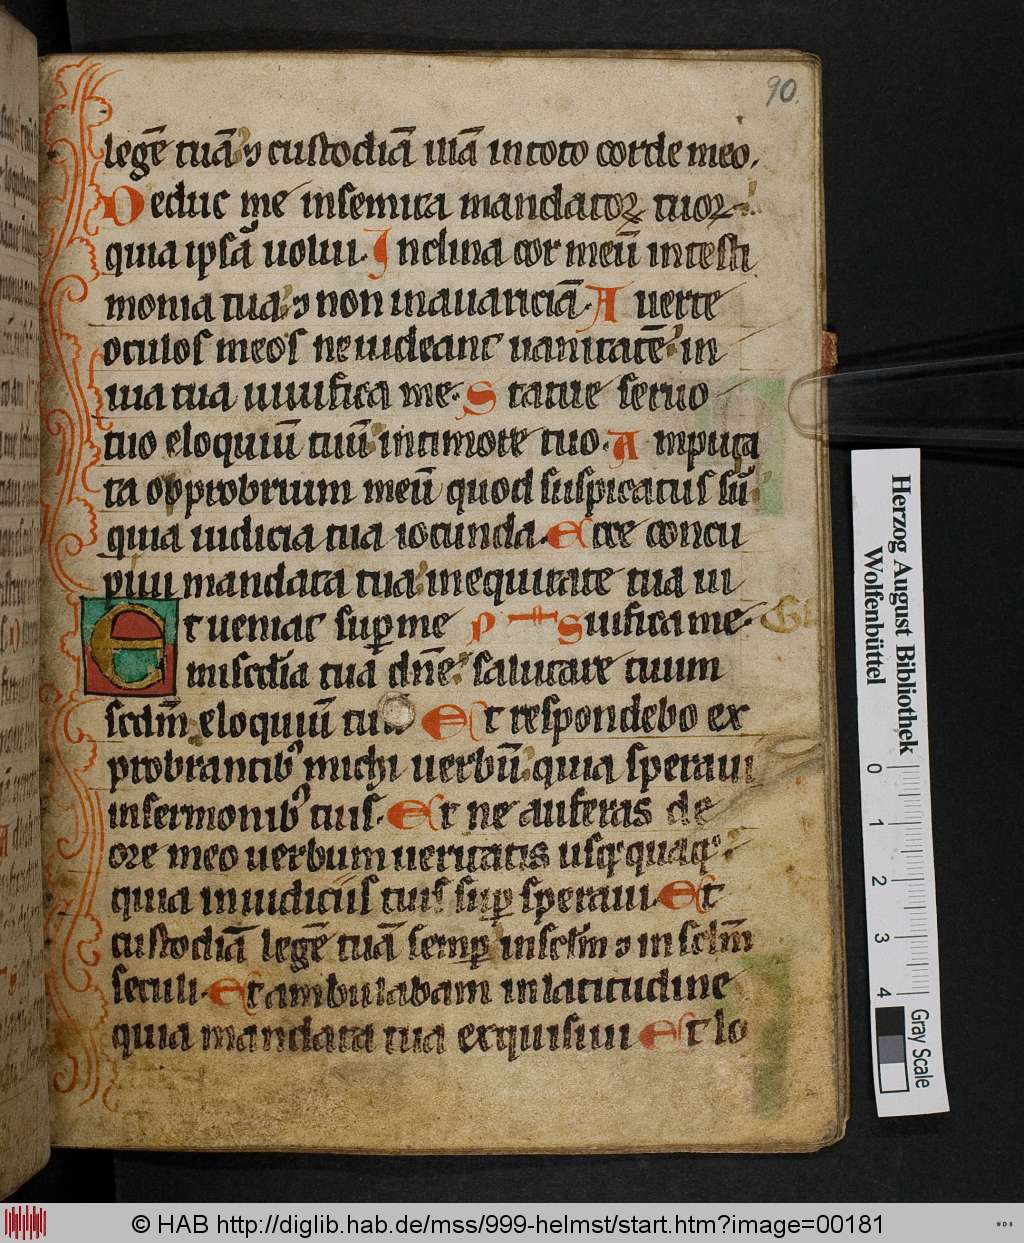 90.
legē tuā ⁊ custodiā illā in toto corde meo.
Deduc me in semita mandatoꝝ tuoꝝ
quia ipsā uolui. Inclina cor meū in testi
monia tua ⁊ non in auariciā. Auerte
oculos meos ne uideant uanitatē in
uia tua uiuifica me. Statue seruo
tuo eloquiū tuū in timore tuo. Amputa
ta opprobrium meū quod suspicatus sū
quia iudicia tua iocunda. Ecce concu
piui mandata tua in equitate tua ui
Et ueniat suꝑ me uifica me.
miscdīa tua dn̄e salutare tuum
scdm̄ eloquiū tuū Et respondebo ex
probrantibꝰ michi uerbū quia speraui
in sermonibꝰ tuis. Et ne auferas de
ore meo uerbum ueritatis usq quaq
quia in iudiciis tuis suꝑ speraui. Et
custodiā legē tuā semꝑ in sclm̄ ⁊ in sclm̄
seculi. Et ambulabam in latitudine
quia mandata tua exquisiui Et lo
Herzog August Bibliothek
Wolfenbüttel
0 1 2 3 4
Gray Scale
© HAB http://diglib.hab.de/mss/999-helmst/start.htm?image=00181